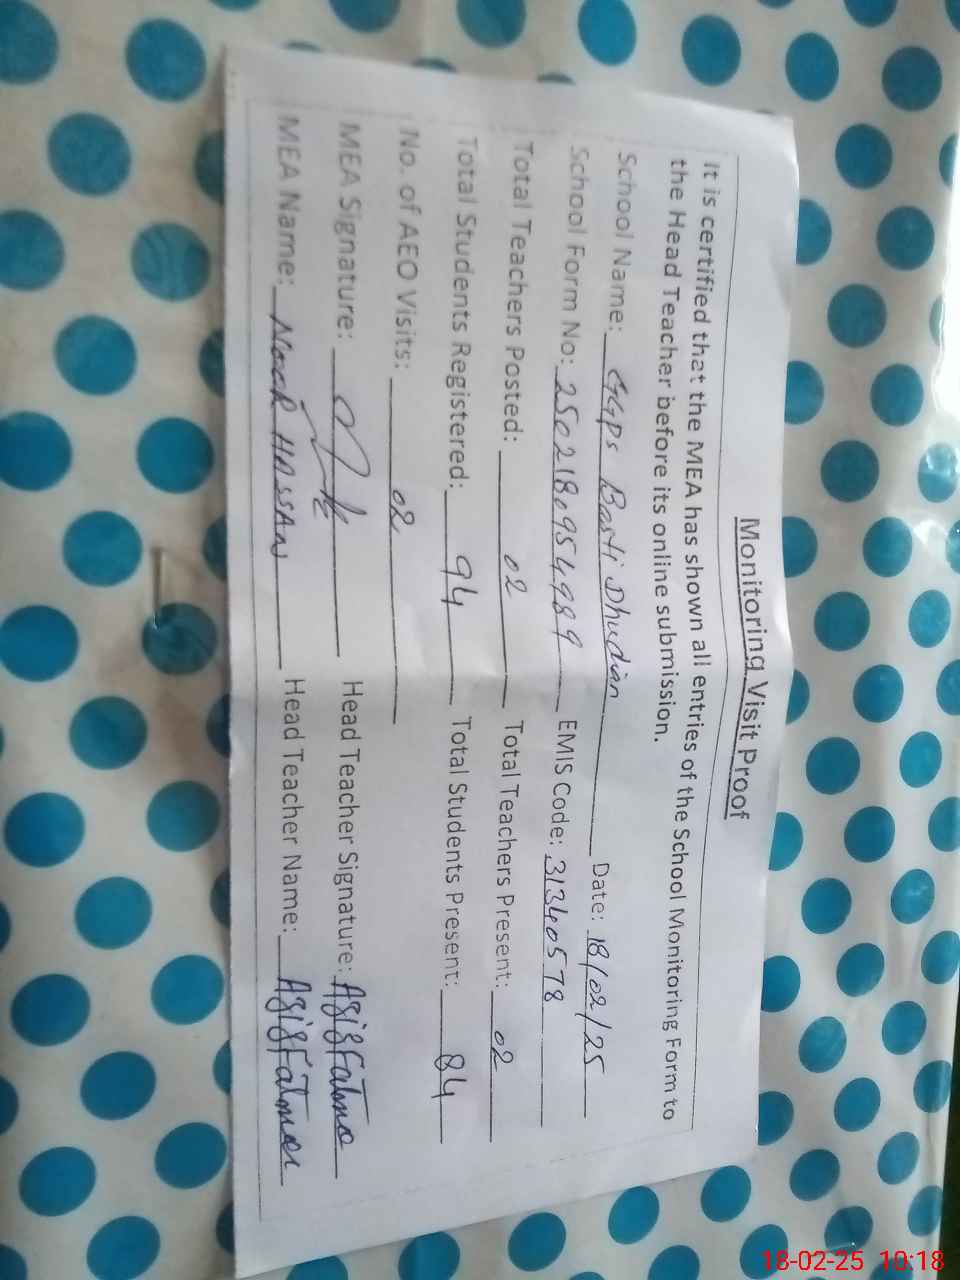 Monitoring Visit Proof
It is certified that the MEA has shown all entries of the School Monitoring Form to
the Head Teacher before its online submission.
School Name: GGPS Basti Dhudian Date: 18/02/25
School Form No: 25021809954989 EMIS Code: 31340578
Total Teachers Posted: 02 Total Teachers Present: 02
Total Students Registered: 94 Total Students Present: 84
No. of AEO Visits: 02
MEA Signature: Head Teacher Signature: Aziz Fatima
MEA Name: NOOR HASSAN Head Teacher Name: Aziz Fatima
18-02-25 10:18